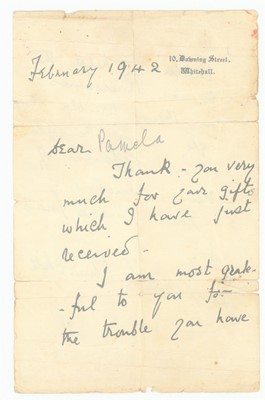 10, Downing Street,
Whitehall.
February 1942
Dear Pamela
Thank - you very
much for your gift
which I have just
received -
I am most grate-
-ful to you for
the trouble you have